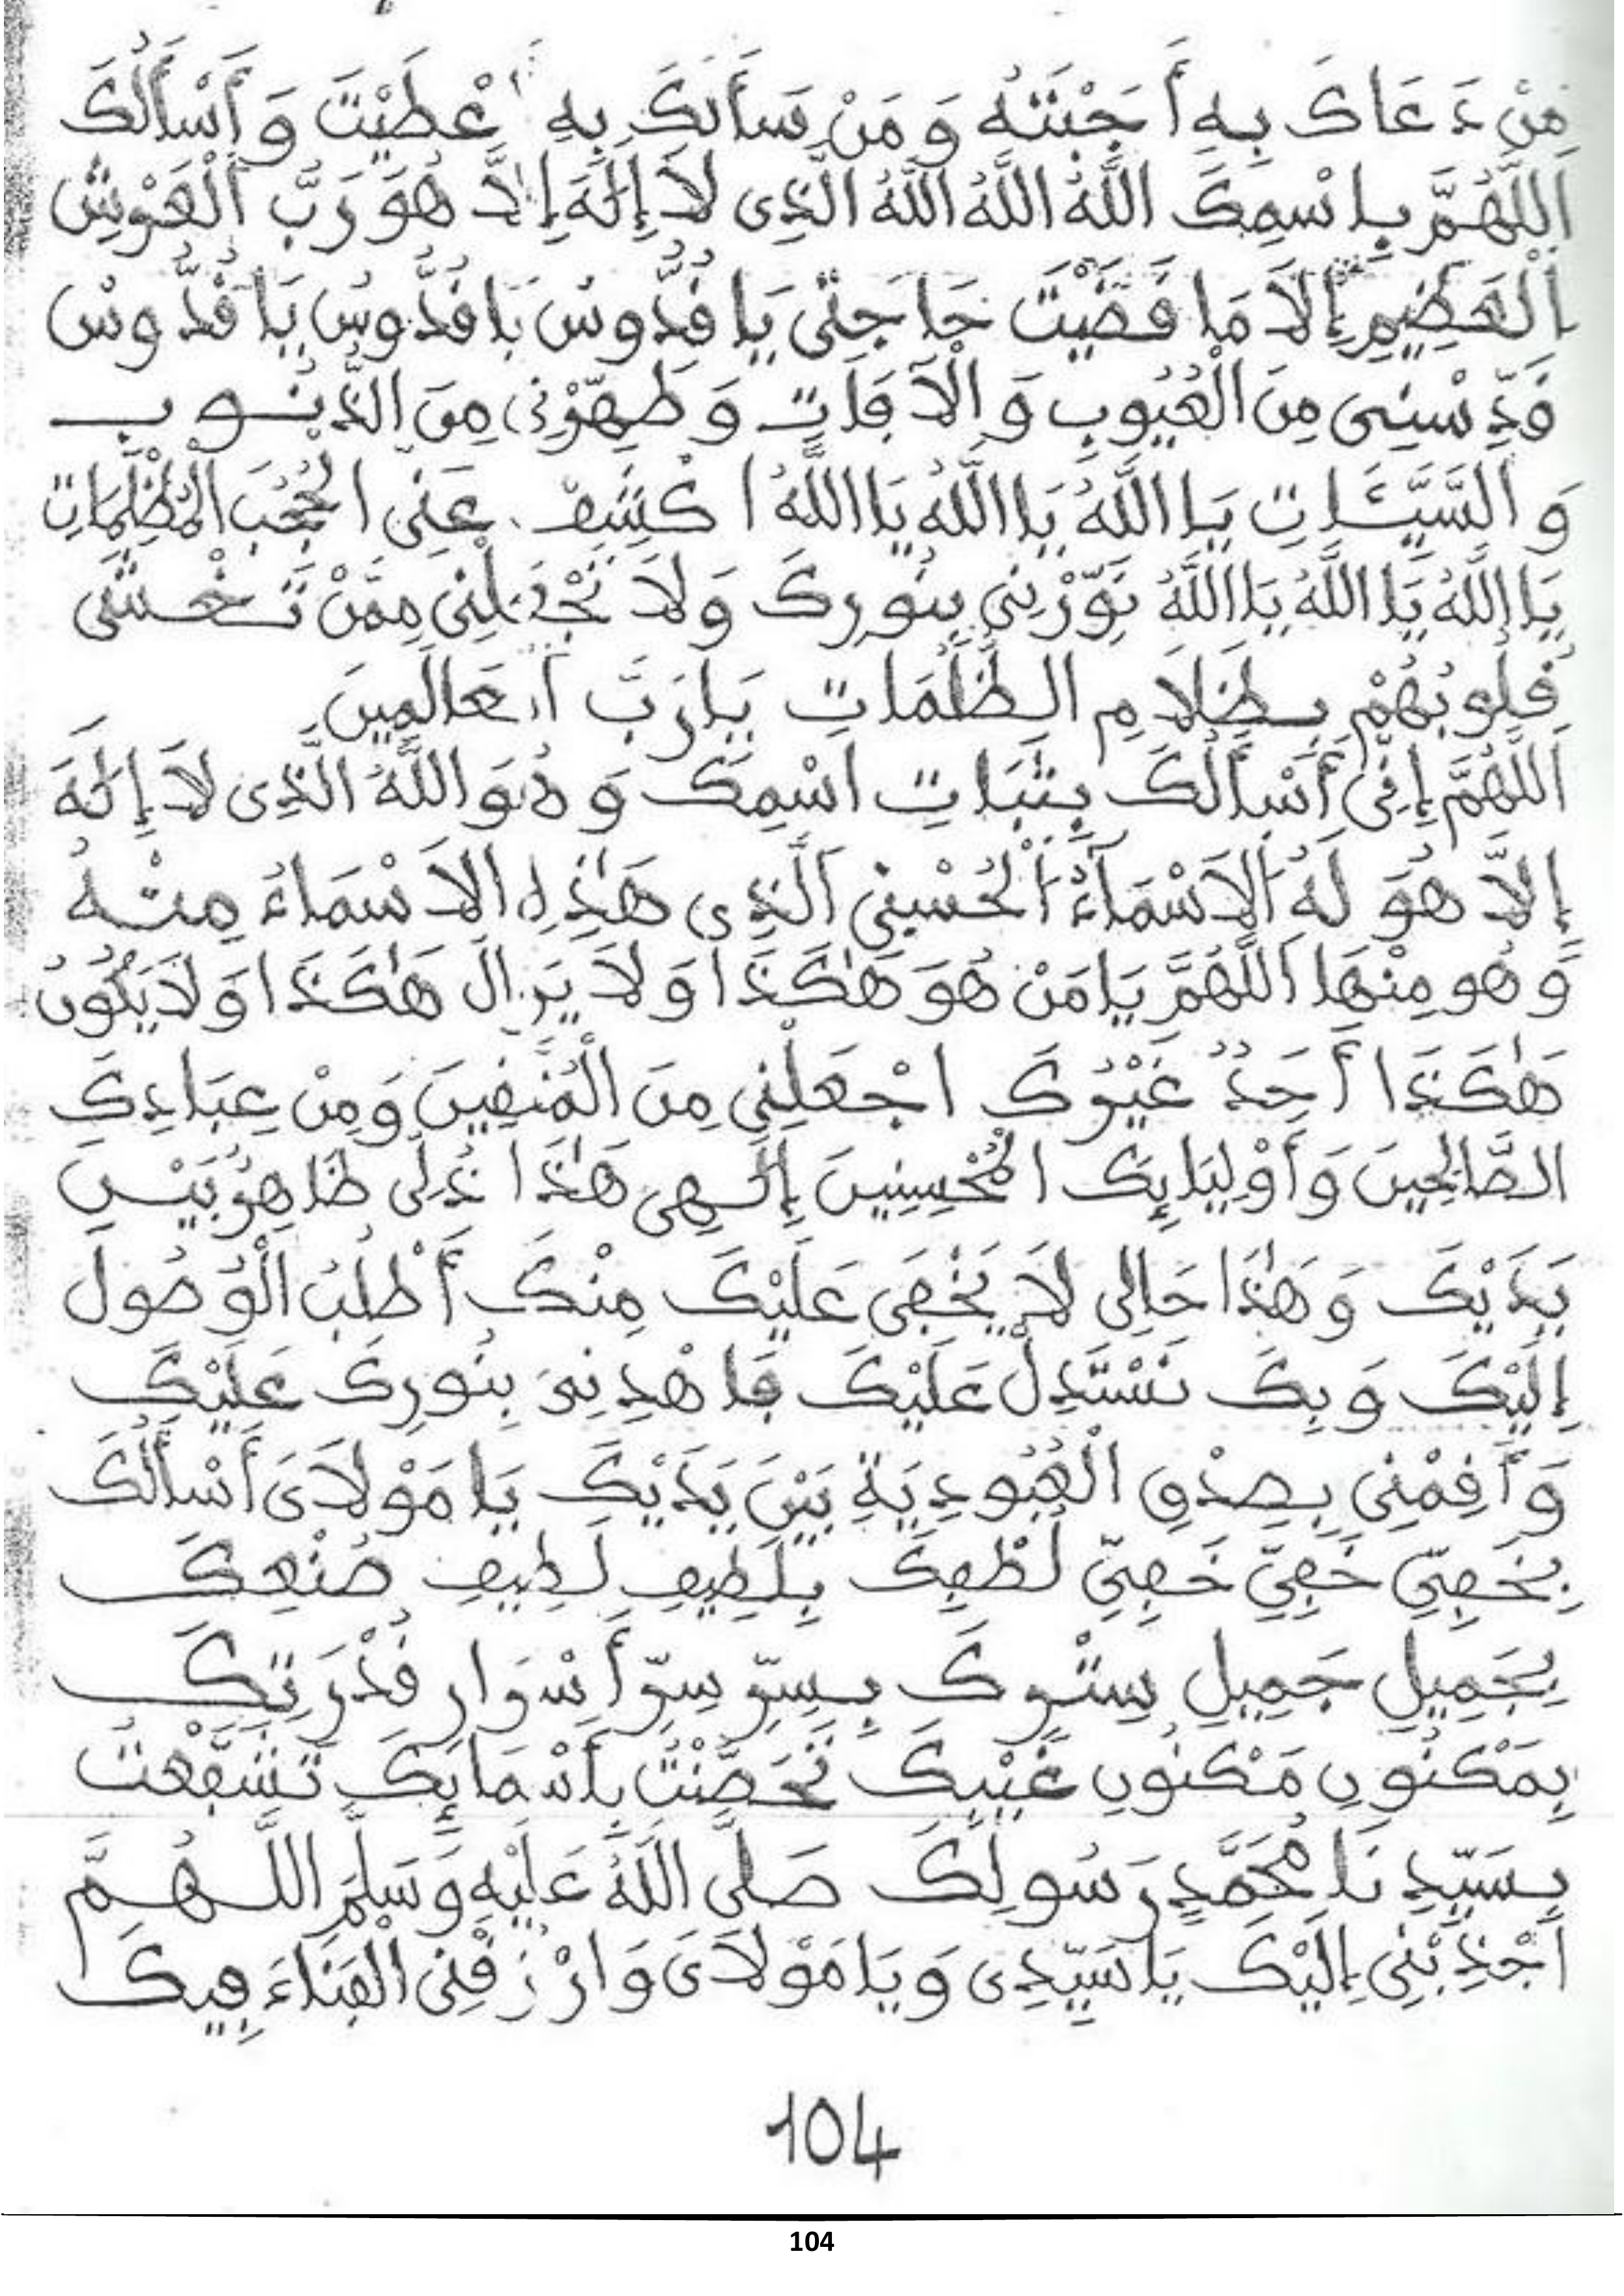 مِنْ دَعَاكَ بِهِ أَجَبْتَهُ وَمَنْ سَأَلَكَ بِهِ أَعْطَيْتَ وَأَسْأَلُكَ
اللَّهُمَّ بِاسْمِكَ اللَّهُ اللَّهُ اللَّهُ الَّذِى لَا إِلَٰهَ إِلَّا هُوَ رَبُّ الْعَرْشِ
الْعَظِيمِ إِلَّا مَا قَضَيْتَ حَاجَتِى يَا قُدُّوسُ يَا قُدُّوسُ يَا قُدُّوسُ
قَدِّسْنِى مِنَ الْعُيُوبِ وَالْآفَاتِ وَطَهِّرْنِى مِنَ الذُّنُوبِ
وَالسَّيِّئَاتِ يَا اللَّهُ يَا اللَّهُ يَا اللَّهُ اكْشِفْ عَنِّى الْحُجُبَ الْمُظْلِمَاتِ
يَا اللَّهُ يَا اللَّهُ يَا اللَّهُ نَوِّرْنِى بِنُورِكَ وَلَا تَجْعَلْنِى مِمَّنْ تَغْشَى
قُلُوبُهُمْ بِظَلَامِ الظُّلُمَاتِ يَا رَبَّ الْعَالَمِينَ
اللَّهُمَّ إِنِّى أَسْأَلُكَ بِثَبَاتِ اسْمِكَ وَهُوَ اللَّهُ الَّذِى لَا إِلَٰهَ
إِلَّا هُوَ لَهُ الْأَسْمَاءُ الْحُسْنَى الَّذِى هَٰذِهِ الْأَسْمَاءُ مِنْهُ
وَهُوَ مِنْهَا اللَّهُمَّ يَا مَنْ هُوَ هَٰكَذَا وَلَا يَزَالُ هَٰكَذَا وَلَا يَكُونُ
هَٰكَذَا أَحَدٌ غَيْرُكَ اجْعَلْنِى مِنَ الْمُتَّقِينَ وَمِنْ عِبَادِكَ
الصَّالِحِينَ وَأَوْلِيَائِكَ الْمُحْسِنِينَ إِلَٰهِى هَٰذَا ذُلِّى ظَاهِرٌ بَيْنَ
يَدَيْكَ وَهَٰذَا حَالِى لَا يَخْفَى عَلَيْكَ مِنْكَ أَطْلُبُ الْوُصُولَ
إِلَيْكَ وَبِكَ نَسْتَدِلُّ عَلَيْكَ فَاهْدِنِى بِنُورِكَ عَلَيْكَ
وَأَقِمْنِى بِصِدْقِ الْعُبُودِيَةِ بَيْنَ يَدَيْكَ يَا مَوْلَاىَ أَسْأَلُكَ
بِخَفِىِّ خَفِىِّ خَفِىِّ لُطْفِكَ بِلَطِيفِ لَطِيفِ صُنْعِكَ
بِجَمِيلِ جَمِيلِ سِتْرِكَ بِسِرِّ سِرِّ أَسْرَارِ قُدْرَتِكَ
بِمَكْنُونِ مَكْنُونِ غَيْبِكَ تَحَصَّنْتُ بِأَسْمَائِكَ تَشَفَّعْتُ
بِسَيِّدِنَا مُحَمَّدٍ رَسُولِكَ صَلَّى اللَّهُ عَلَيْهِ وَسَلَّمَ اللَّهُمَّ
اجْذِبْنِى إِلَيْكَ يَا سَيِّدِى وَيَا مَوْلَاىَ وَارْزُقْنِى الْفَنَاءَ فِيكَ
104
104